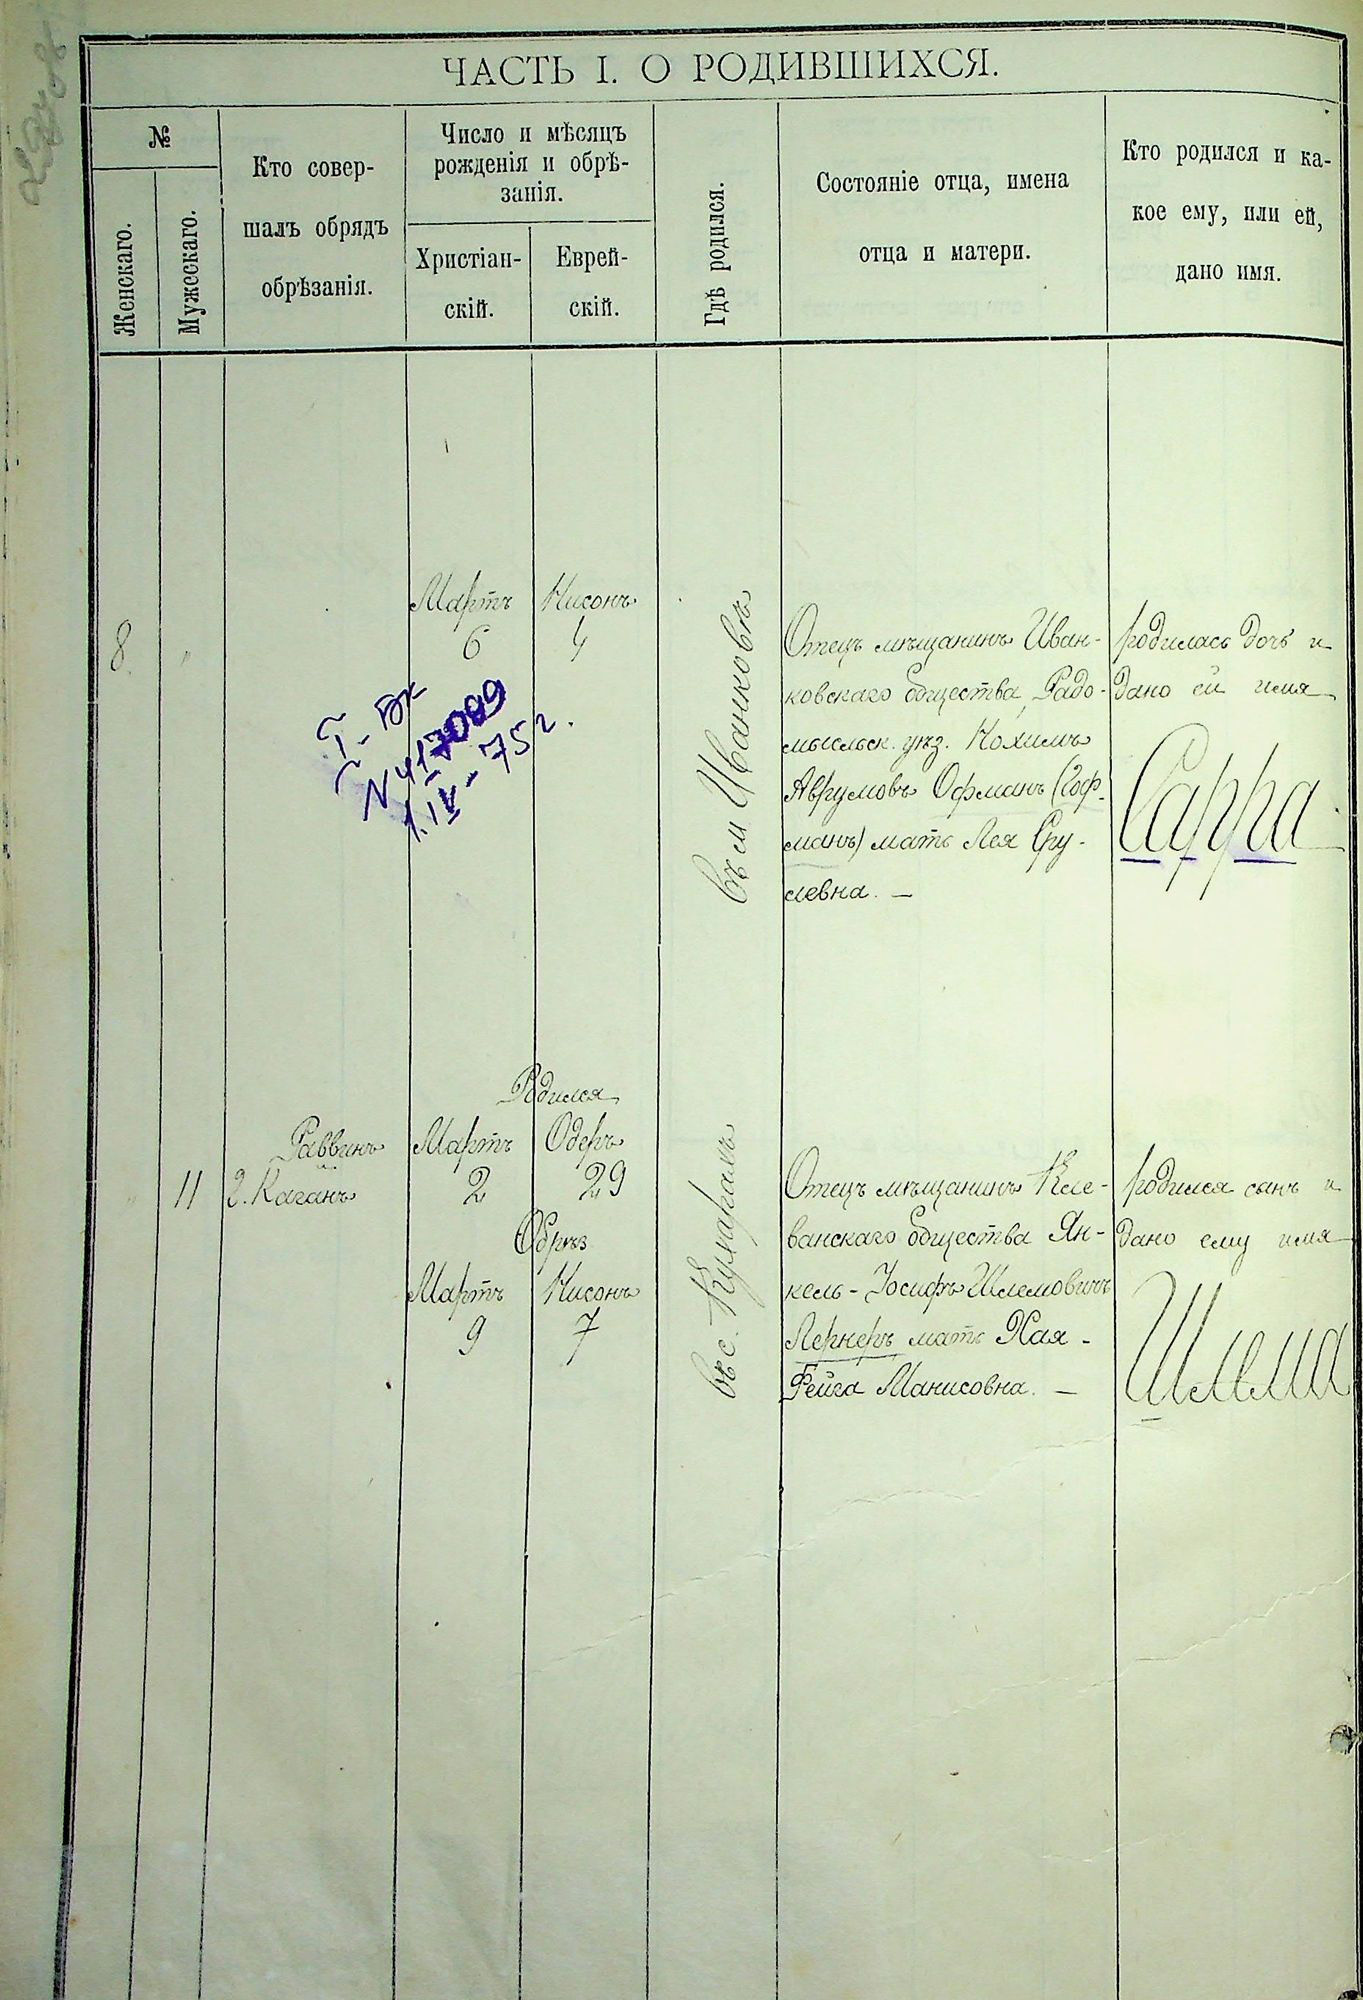 ЧАСТЬ I. О РОДИВШИХСЯ.
№
Женскаго.
Мужескаго.
Кто совер-
шалъ обрядъ
обрѣзанія.
Число и мѣсяцъ
рожденія и обрѣ-
занія.
Христіан-
скій.
Еврей-
скій.
Гдѣ родился.
Состояніе отца, имена
отца и матери.
Кто родился и ка-
кое ему, или ей,
дано имя.
8
"
Мартъ
6
Нисонъ
4
въ м Иванковѣ
Отецъ мѣщанинъ Иван-
ковскаго общества, Радо-
мысльск. уѣз.
Аврумовъ Офманъ (Гоф-
манъ) мать Лея Сру-
левна. —
родилась дочь и
дано ей имя
Сарра
1.IV-75 г.
"
11
Раввинъ
Каганъ
Родился
Мартъ
2
Одеръ
29
Обрѣз
Мартъ
9
Нисонъ
7
въ с.
Отецъ мѣщанинъ
ванскаго общества Ян-
кель-Іосифъ Шлемовичъ
Лернеръ мать Хая-
Фейга Манисовна. —
родился сынъ и
дано ему имя
Шлема